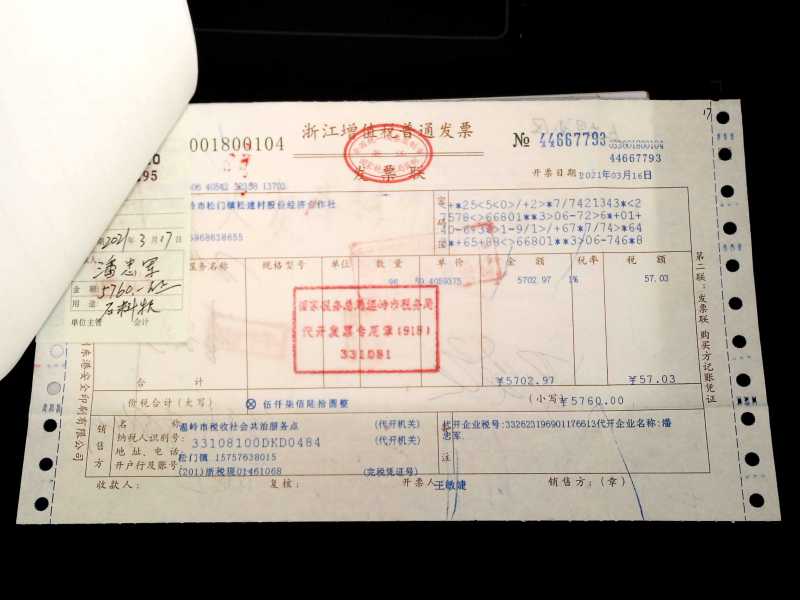 浙江增值税普通发票
001800104
№ 44667793
033001800104
44667793
发票联
开票日期
2021年03月16日
17
95
06 40542 32158 13703
岭市松门镇松建村股份经济合作社
5968618655
+*25<5<0>/+2>*7/7421343*<2
7578<>66801**3>06-72>6*+01+
40-6+3*>1-9/1>/+67*7/74>*64
*+65+88<>66801**3>06-746*8
服务名称
规格型号
单位
数量
单价
金额
税率
税额
96
59.4059375
5702.97
1%
57.03
国家税务总局温岭市税务局
代开发票专用章(918)
331081
2021年3月17日
潘忠军
金额
5760.-
用途
石料款
单位主管
会计
合计
¥5702.97
¥57.03
价税合计(大写)
ⓧ 伍仟柒佰陆拾圆整
(小写)
¥5760.00
销售方
名称
温岭市税收社会共治服务点
(代开机关)
纳税人识别号:
33108100DKD0484
(代开机关)
地址、电话:
松门镇 15757638015
开户行及账号
(201)浙税现01461068
(完税凭证号)
代开企业税号:332623196901176613代开企业名称:潘
忠军
注
收款人:
复核:
开票人
王敏婕
销售方:(章)
第二联:发票联 购买方记账凭证
东港安全印刷有限公司